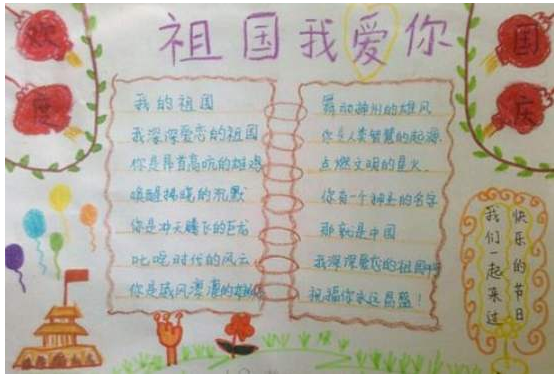 欢度
国庆
祖国我爱你
我的祖国
我深深爱恋的祖国
你是昂首高吭的雄鸡
唤醒拂晓的沉默
你是冲天腾飞的巨龙
叱咤时代的风云
你是威风凛凛的
舞动神州的雄风
你是人类智慧的起源
点燃文明的星火
你有一个神圣的名字
那就是中国
我深深爱恋的祖国
祝福你永远昌盛！
快乐的节日
我们一起来过